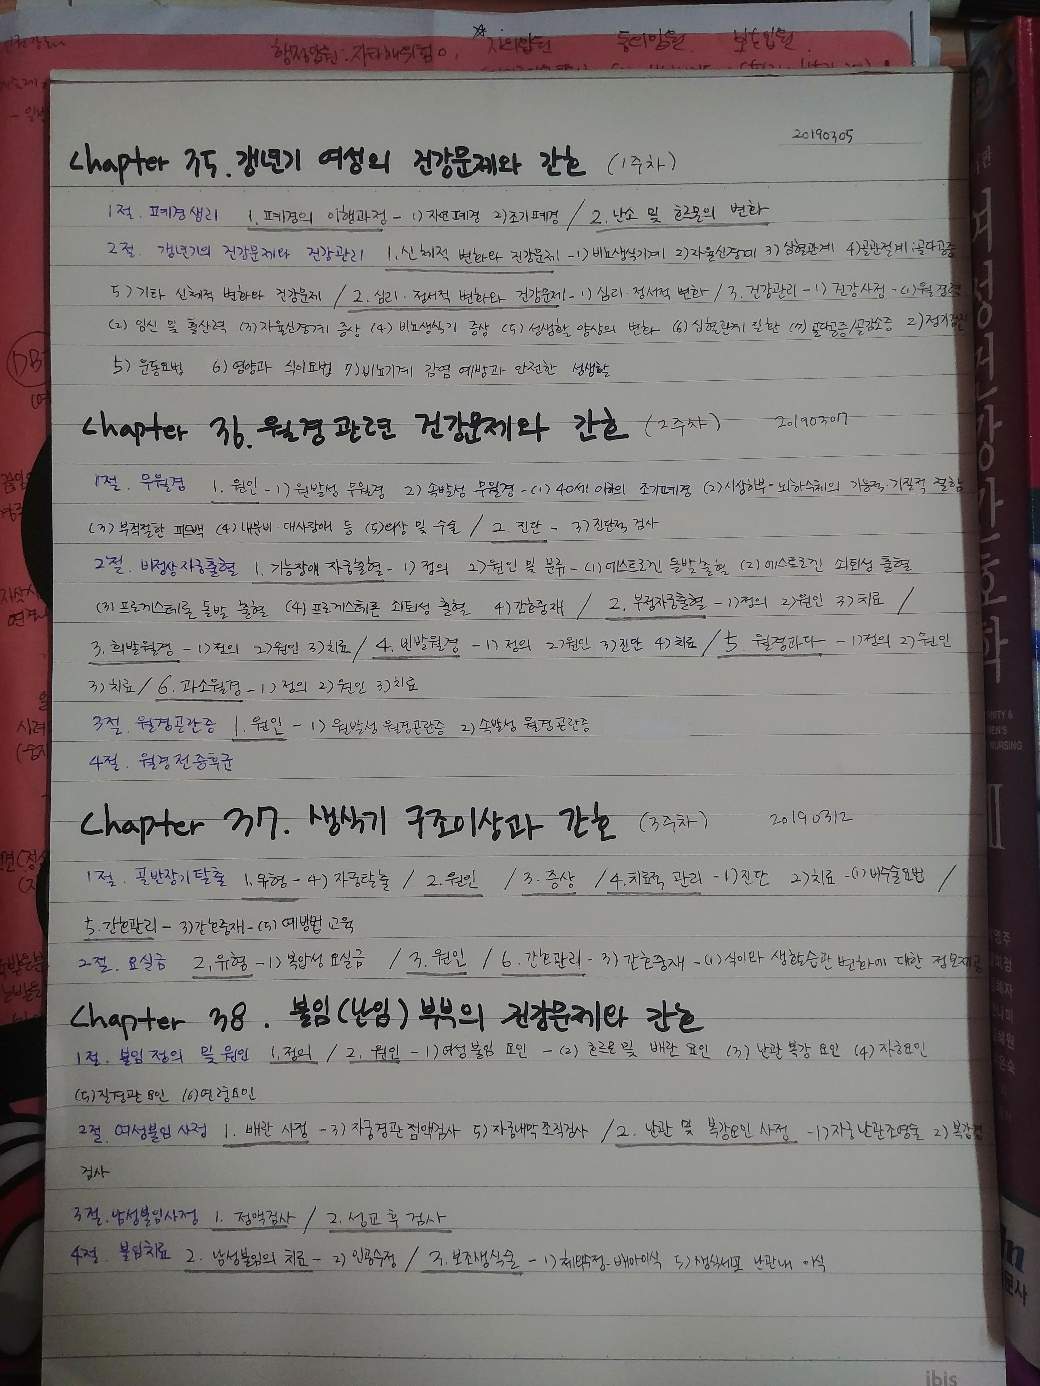 행정입원: 자타해위험 0, 자의입원 동의입원 보호입원
20190305
Chapter 35. 갱년기 여성의 건강문제와 간호 (1주차)
1절. 폐경생리 1. 폐경의 이행과정 - 1) 자연폐경 2) 조기폐경 / 2. 난소 및 호르몬의 변화
2절. 갱년기의 건강문제와 건강관리 1. 신체적 변화와 건강문제 - 1) 비뇨생식기계 2) 자율신경계 3) 심혈관계 4) 골관절계:골다공증
5) 기타 신체적 변화와 건강문제 / 2. 심리·정서적 변화와 건강문제 - 1) 심리·정서적 변화 / 3. 건강관리 - 1) 건강사정 - (1) 월경력
(2) 임신 및 출산력 (3) 자율신경계 증상 (4) 비뇨생식기 증상 (5) 성생활 양상의 변화 (6) 심혈관계 질환 (7) 골다공증/골감소증 2) 정기검진
5) 운동요법 6) 영양과 식이요법 7) 비뇨기계 감염 예방과 안전한 성생활
Chapter 36. 월경관련 건강문제와 간호 (2주차) 20190307
1절. 무월경 1. 원인 - 1) 원발성 무월경 2) 속발성 무월경 - (1) 40세 이하의 조기폐경 (2) 시상하부-뇌하수체의 기능적·기질적 결함
(3) 부적절한 피드백 (4) 내분비 대사장애 등 (5) 외상 및 수술 / 2. 진단 - 3) 진단적 검사
2절. 비정상 자궁출혈 1. 기능장애 자궁출혈 - 1) 정의 2) 원인 및 분류 - (1) 에스트로겐 돌발출혈 (2) 에스트로겐 쇠퇴성 출혈
(3) 프로게스테론 돌발 출혈 (4) 프로게스테론 쇠퇴성 출혈 4) 간호중재 / 2. 부정자궁출혈 - 1) 정의 2) 원인 3) 치료 /
3. 희발월경 - 1) 정의 2) 원인 3) 치료 / 4. 빈발월경 - 1) 정의 2) 원인 3) 진단 4) 치료 / 5. 월경과다 - 1) 정의 2) 원인
3) 치료 / 6. 과소월경 - 1) 정의 2) 원인 3) 치료
3절. 월경곤란증 1. 원인 - 1) 원발성 월경곤란증 2) 속발성 월경곤란증
4절. 월경전증후군
Chapter 37. 생식기 구조이상과 간호 (3주차) 20190312
1절. 골반장기탈출 1. 유형 - 4) 자궁탈출 / 2. 원인 / 3. 증상 / 4. 치료적 관리 - 1) 진단 2) 치료 - (1) 비수술요법 /
5. 간호관리 - 3) 간호중재 - (5) 예방법 교육
2절. 요실금 2. 유형 - 1) 복압성 요실금 / 3. 원인 / 6. 간호관리 - 3) 간호중재 - (1) 식이와 생활습관 변화에 대한 정보제공
Chapter 38. 불임(난임) 부부의 건강문제와 간호
1절. 불임 정의 및 원인 1. 정의 / 2. 원인 - 1) 여성불임 요인 - (2) 호르몬 및 배란 요인 (3) 난관 복강 요인 (4) 자궁요인
(5) 질경관 요인 (6) 연령요인
2절. 여성불임 사정 1. 배란 사정 - 3) 자궁경관 점액검사 5) 자궁내막 조직검사 / 2. 난관 및 복강요인 사정 - 1) 자궁난관조영술 2) 복강경
검사
3절. 남성불임사정 1. 정액검사 / 2. 성교 후 검사
4절. 불임치료 2. 남성불임의 치료 - 2) 인공수정 / 3. 보조생식술 - 1) 체외수정-배아이식 5) 생식세포 난관내 이식
ibis
여성건강간호학
NURSING
II